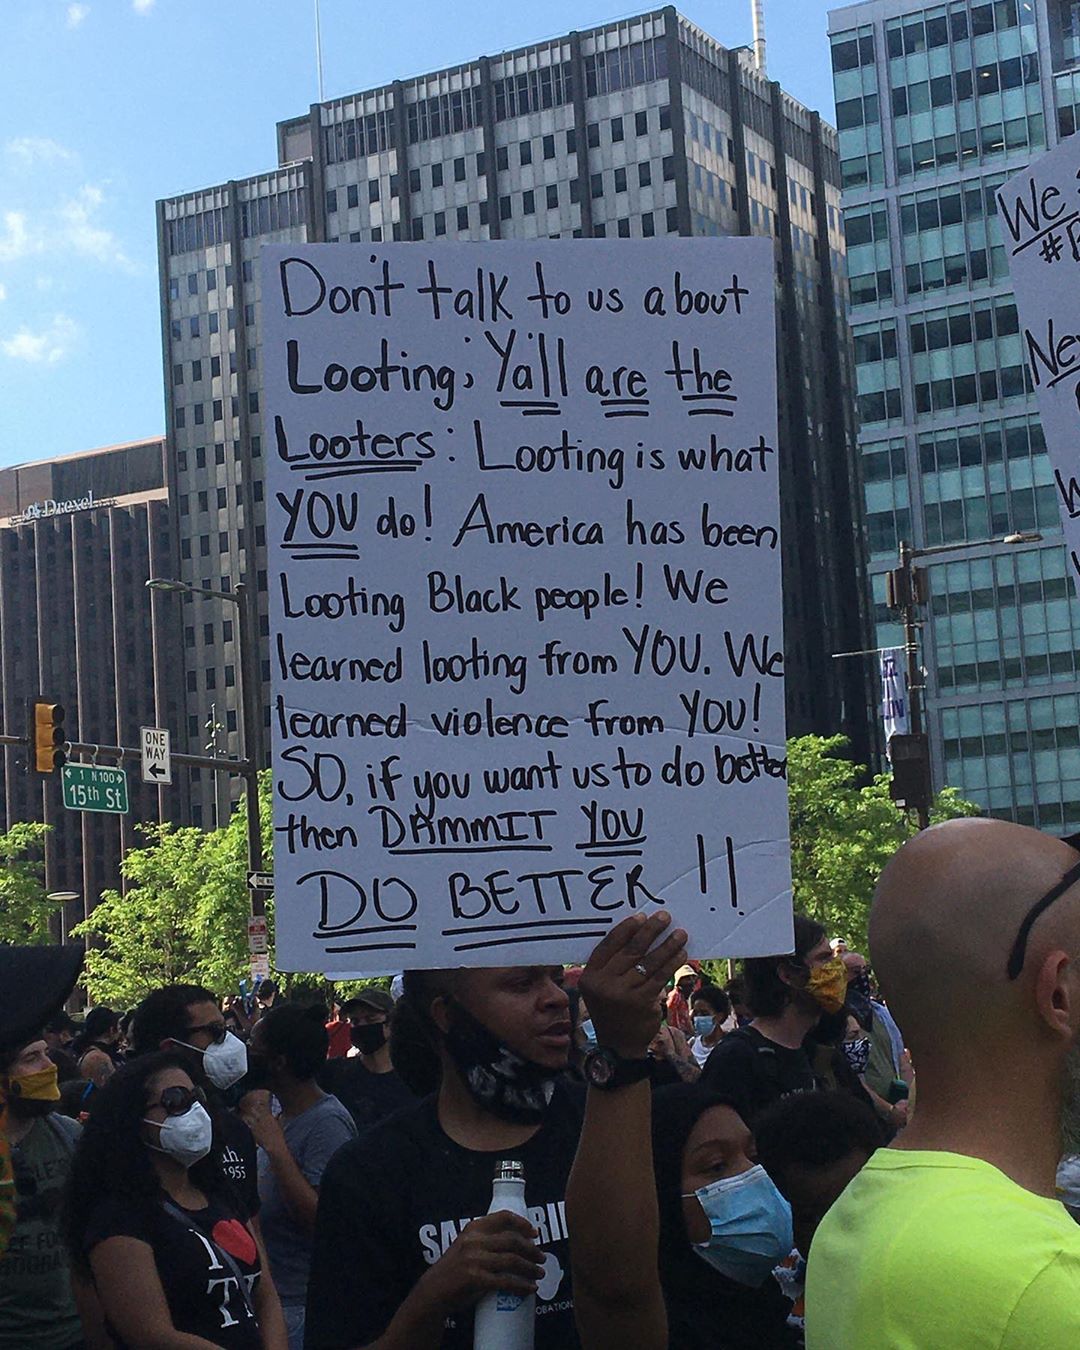 Don't talk to us about
Looting; Ya'll are the
Looters: Looting is what
YOU do! America has been
Looting Black people! We
learned looting from YOU. We
learned violence from YOU!
SO, if you want us to do better
then DAMMIT YOU
DO BETTER !!
We
Drexel
ONE
WAY
1 N 100
15th St
1955
I